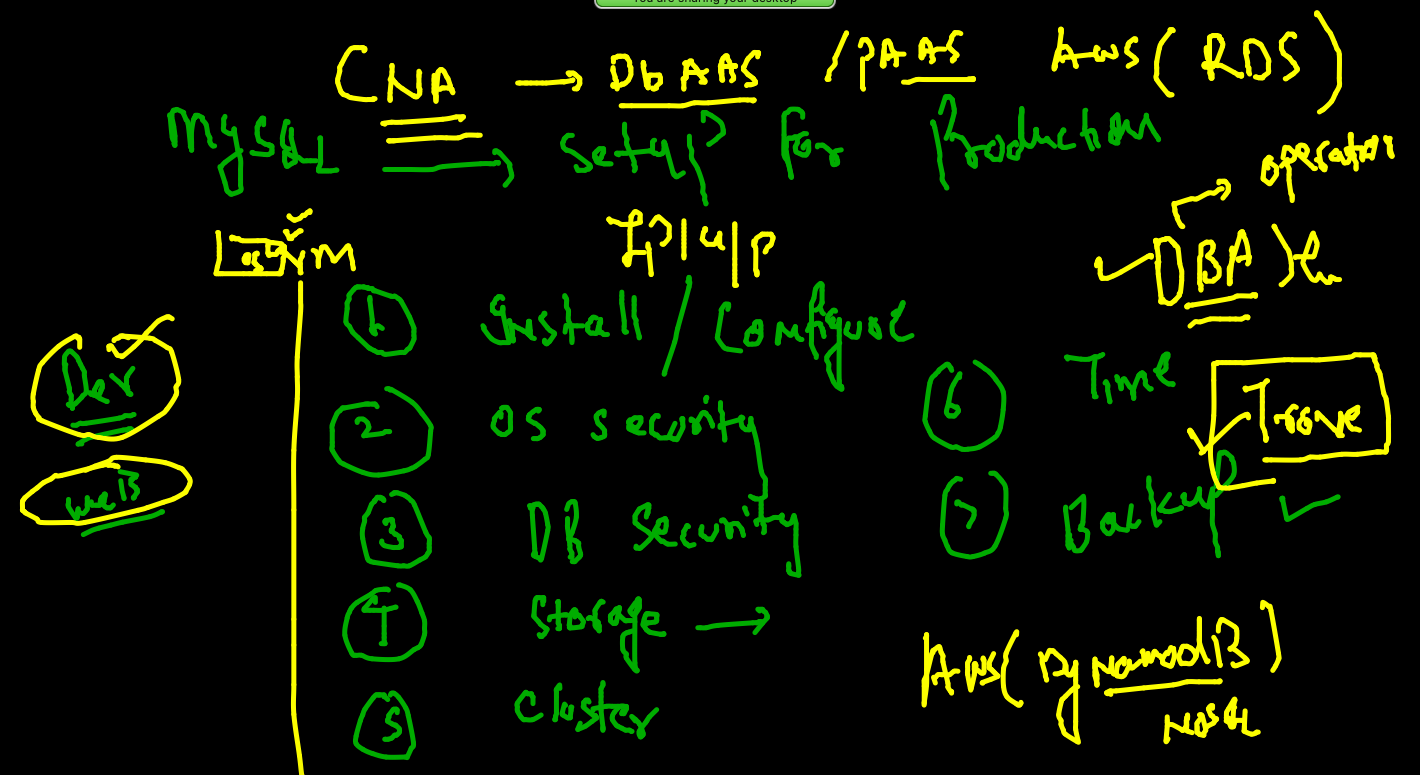 You are sharing your desktop
CNA → DbAAS / PAAS AWS ( RDS )
MySQL → Setup For Production
OS VM
IP|U|P
DBA → operation
1 Install / Configure
2 OS Security
3 DB Security
4 Storage →
5 Cluster
6 Time
7 Backup
Trove
Dev
web
AWS ( DynamodB )
NOSQL